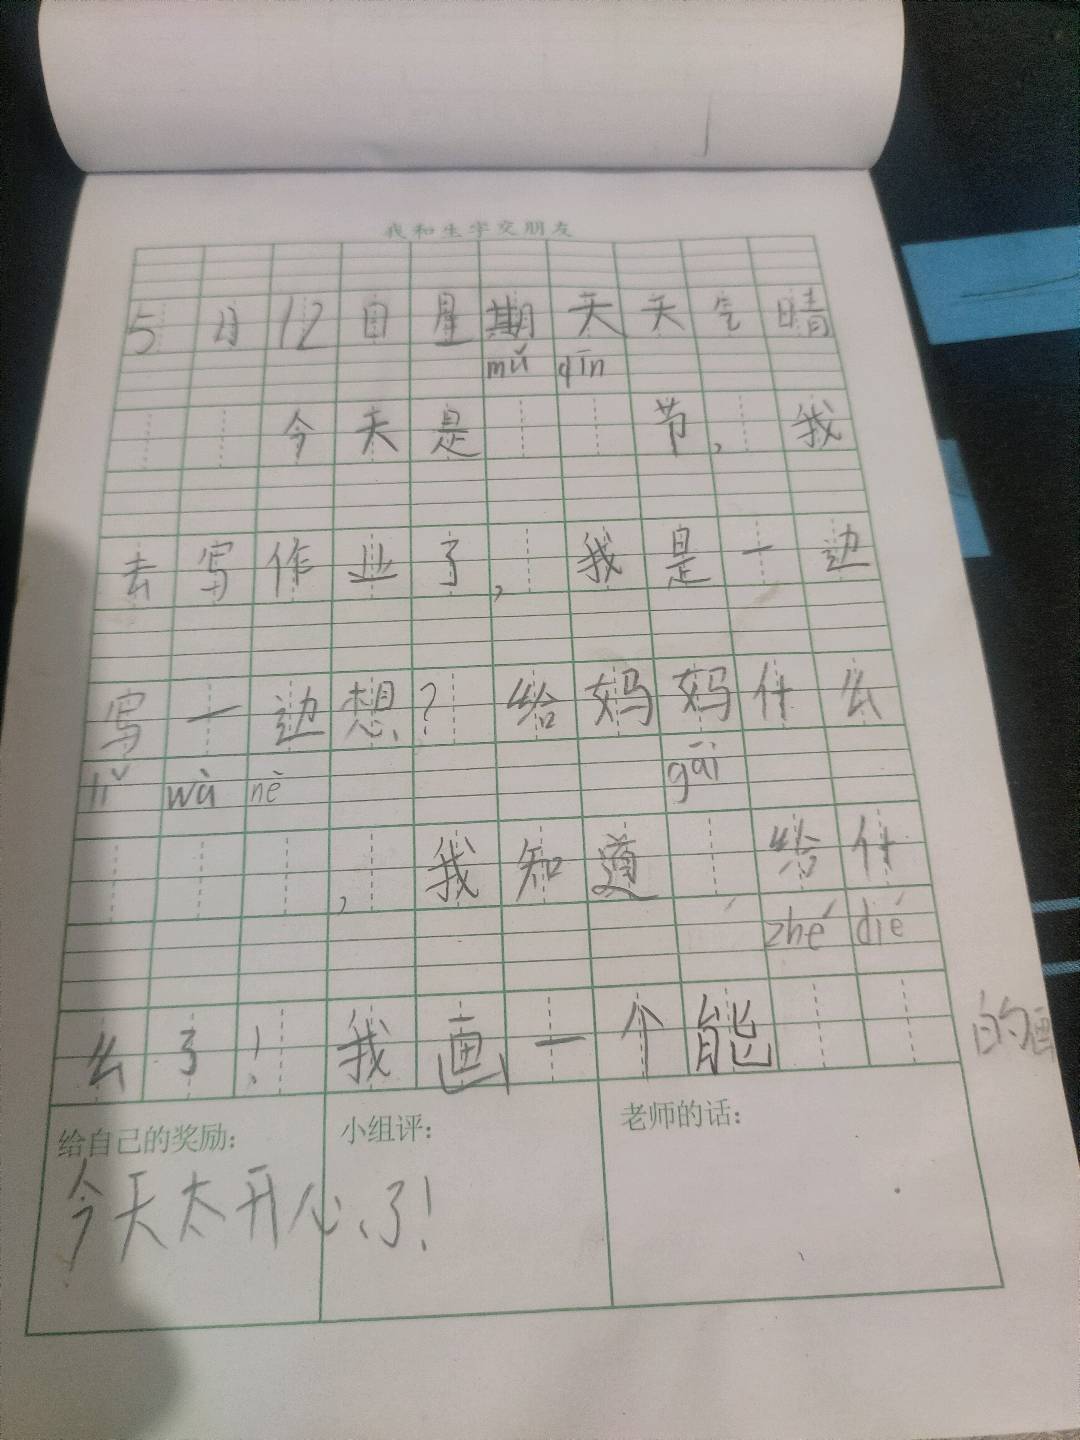 我和生字交朋友
5月12日星期天天气晴
mǔ qīn
今天是节，我
去写作业了，我是一边
写一边想？给妈妈什么
lǐ wù nè gāi
，我知道给什
zhé dié
么了！我画一个能的画
给自己的奖励： 小组评： 老师的话：
今天太开心了！